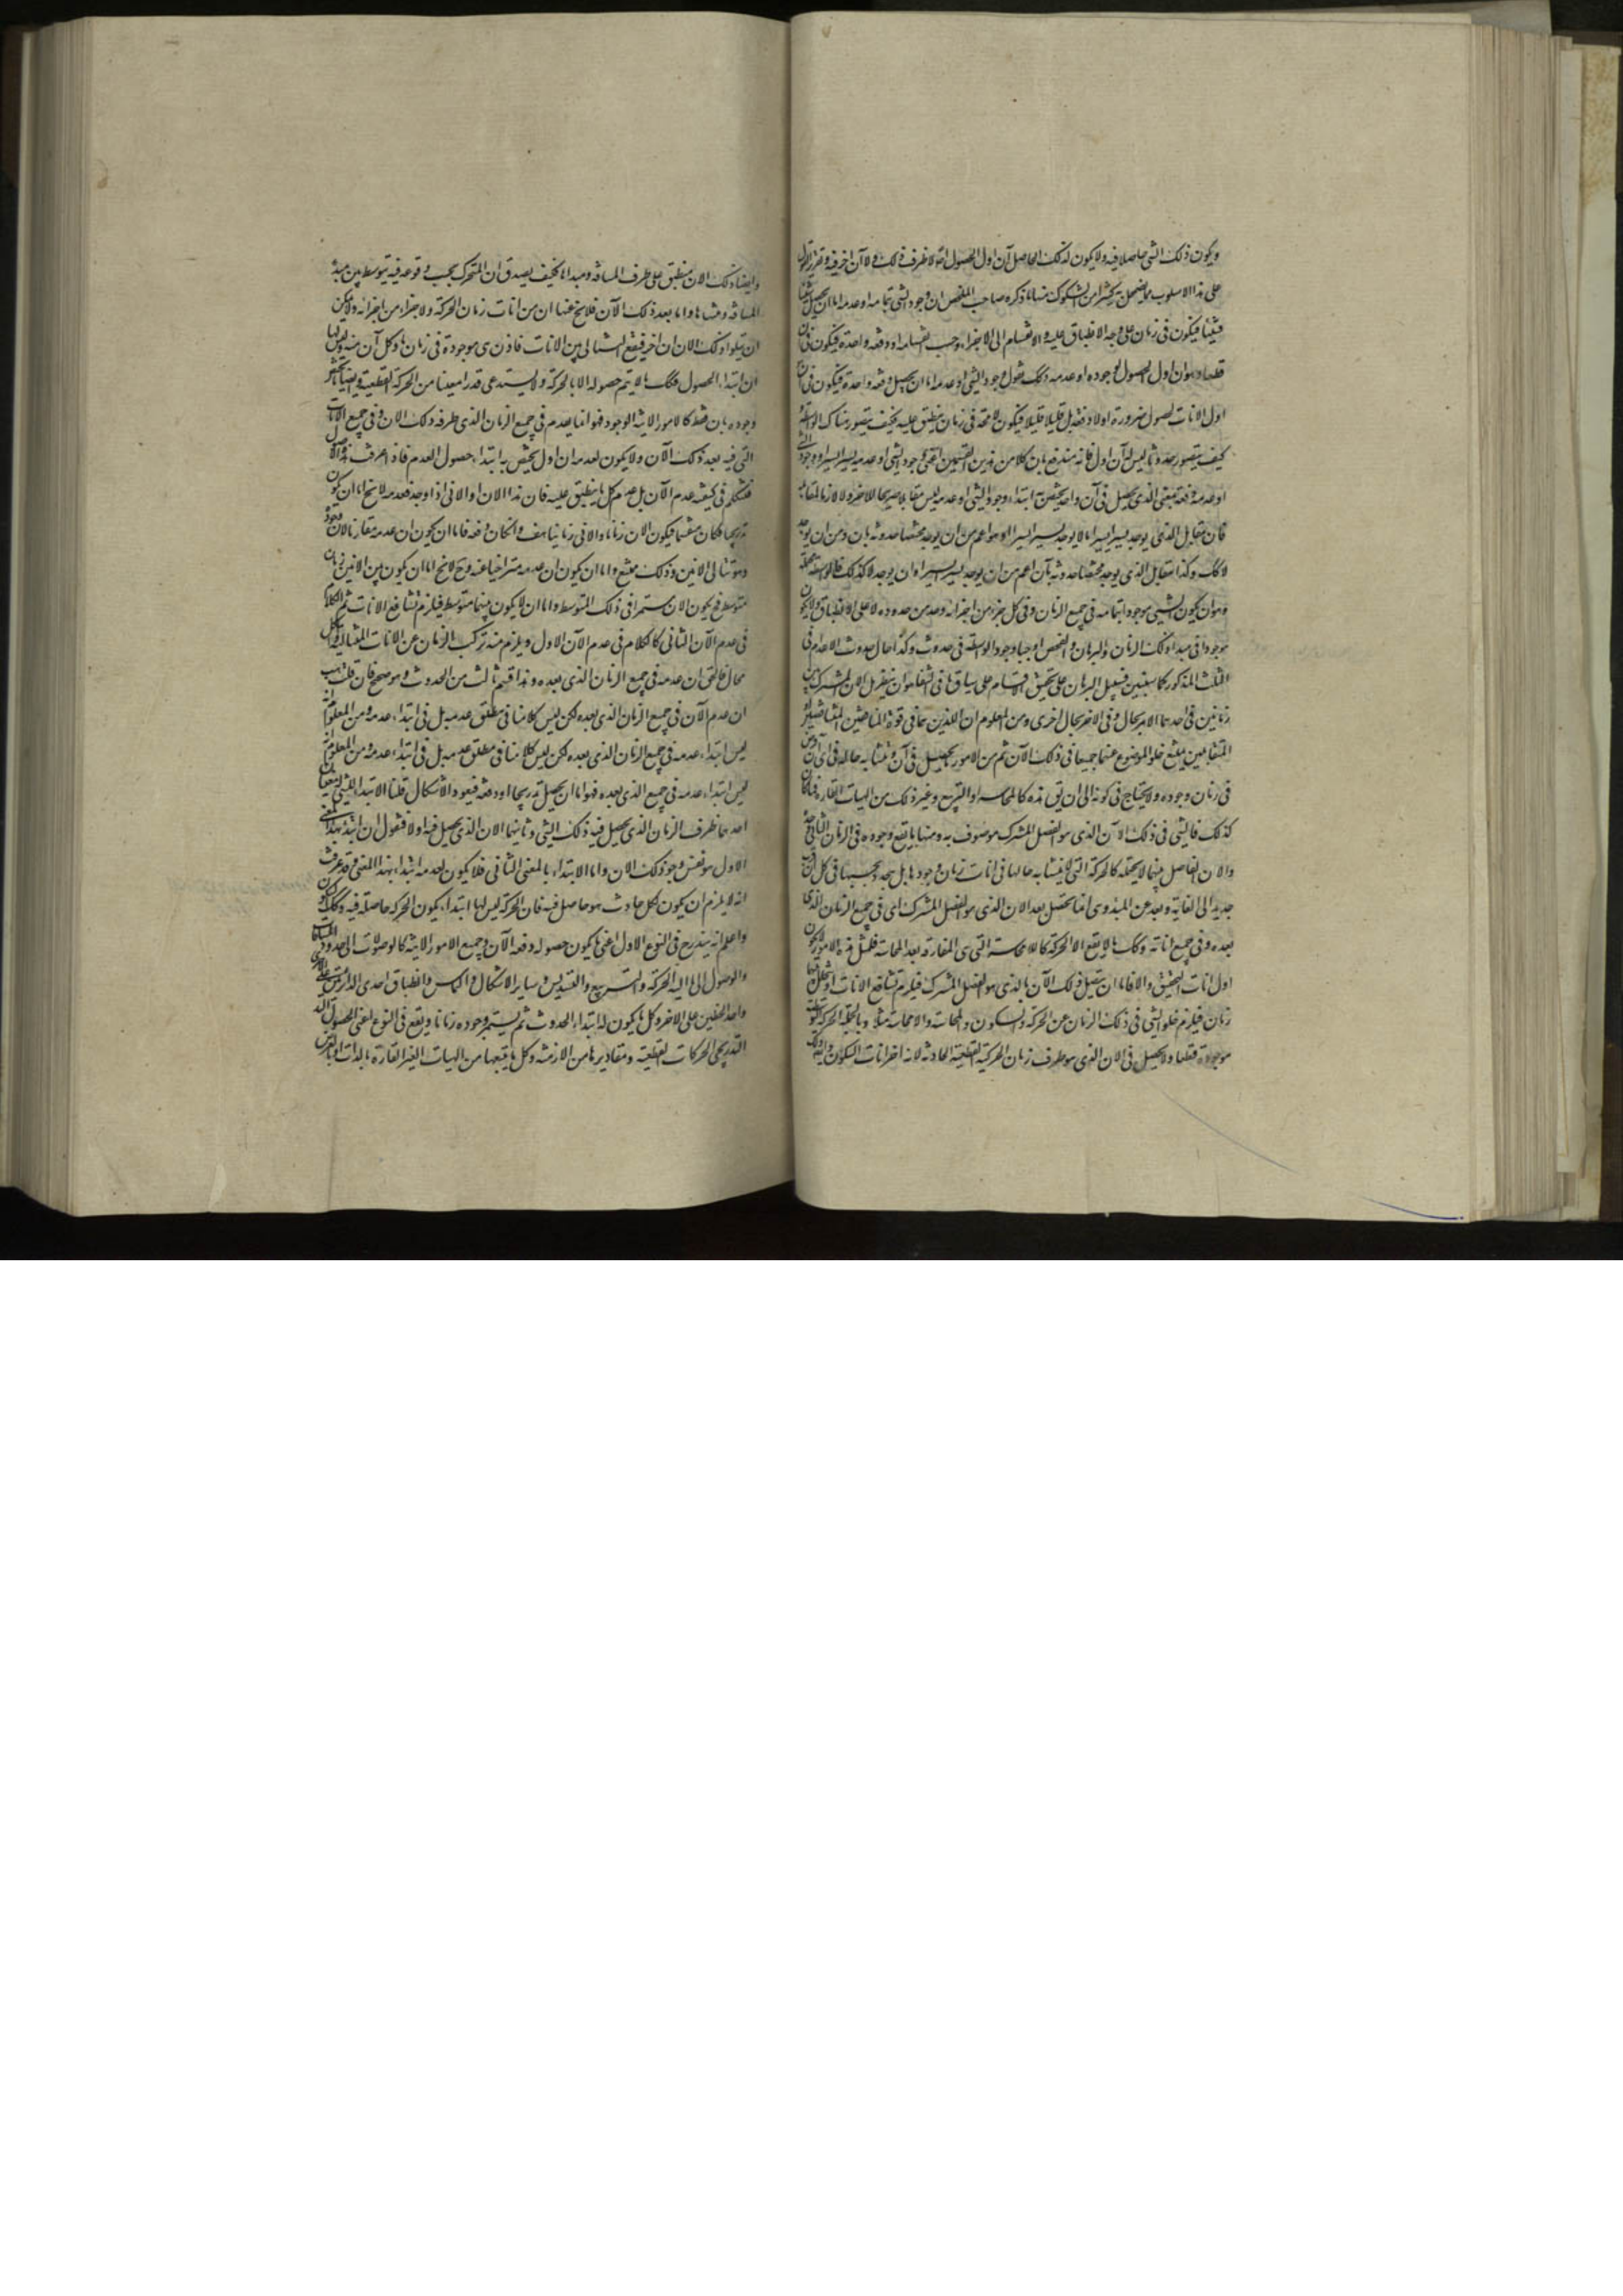 ويكون ذلك الشي حاصلا فيه ولا يكون لذلك الحاصل آن اول الحصول لا طرف ذلك ولا آن اخر فيه وتقرير القول
على هذا الاسلوب مما يضمحل به كثير من الشكوك منها ما ذكره صاحب الملخص ان وجود الشي بتمامه او عدمه اما ان يحصل شيئا
فشيئا فيكون في زمان على وجه الانطباق عليه والانقسام الى الاجزاء حسب انقسامه او دفعة واحدة فيكون في آن
قطعا وهو ان اول الحصول لوجوده او عدمه ذلك نقول وجود الشي او عدمه اما ان يحصل دفعة واحدة فيكون في آن
اول الانات لحصول ضرورة اولا دفعة بل قليلا قليلا فيكون لا محة في زمان ينطبق عليه فكيف يتصور هناك الواسطة
كيف يتصور حدوث ما ليس له آن اول فانه مندفع بان كلا من هذين القسمين اعني وجود الشي او عدمه يسيرا يسيرا ووجود الشي
او عدمه دفعة بمعنى الذي يحصل في آن واحد يختص به ابتداء وجود الشي او عدمه ليس مقابلا صريحا للاخر ولا لازما لمقابله
فان مقابل الذي يوجد يسيرا يسيرا ما لا يوجد يسيرا يسيرا وهو اعم من ان يوجد مختصا حدوثه بان ومن ان يوجد
لا كك وكذا مقابل الذي يوجد مختصا حدوثه بآن اعم من ان يوجد يسيرا يسيرا او ان يوجد لا كذلك فالواسطة محتملة
وهو ان يكون الشي موجودا بتمامه في جميع الزمان وفي كل جزء من اجزائه وحد من حدوده لا على الانطباق ولا يكون
موجودا في مبدا ذلك الزمان والبرهان والفحص اوجبا وجود الواسطة في حدوث وكذا حال حدوث الاعدام في
الثلث المذكور كما سيتبين فسبيل البرهان على تحقق الاقسام على سياق ما في الشفا هو ان ينظر هل الان المشترك بين
زمانين في احدهما الامر بحال وفي الاخر بحال اخرى ومن المعلوم ان اللذين هما في قوة المتناقضين
المتقابلين يمتنع خلو الموضوع عنهما جميعا في ذلك الآن ثم من الامور ما يحصل في آن وتشابه حاله في اي آن
في زمان وجوده ولا يحتاج في كونه الى ان يق هذه كالمماسة او التربيع وغير ذلك من الهيات القارة فما كان
كذلك فالشي في ذلك الآن الذي هو الفصل المشترك موصوف به ومنها ما يقع وجوده في الزمان الثاني وحده
والان الفاصل بينهما لا يحتمله كالحركة التي لا يتشابه حالها في انات زمان وجودها بل يتجدد بحسبها في كل آن قرب
جديد الى الغاية وبعد عن المبدا وهي انما تحصل بعد الان الذي هو الفصل المشترك اي في جميع الزمان الذي
بعده وفي جميع اناته وكك ما لا يقع الا بالحركة كاللامماسة التي هي المفارقة بعد المماسة فلمثل هذه الامور لا يكون
اول انات التحقق والا فاما ان يتصل ذلك الآن بالذي هو الفصل المشترك فيلزم تشافع الانات او يتخلل بينهما
زمان فيلزم خلو الشي في ذلك الزمان عن الحركة والسكون والمماسة واللامماسة مثلا وبالجملة الحركة التوسطية
موجودة قطعا ولا يحصل في الان الذي هو طرف زمان الحركة القطعية الحادثة لانه اخر انات السكون
وايضا ذلك الان منطبق على طرف المسافة ومبداها فكيف يصدق ان المتحرك بحسب وقوعه فيه يتوسط بين مبدا
المسافة ومنتهاها واما بعد ذلك الآن فلا يخ عنها ان من انات زمان الحركة ولا جزء من اجزائه ولا يمكن
ان يتلو ذلك الان ان اخر فيقع التتالي بين الانات فاذن هي موجودة في زمان ما وكل آن منه وليس لها
ان ابتداء الحصول وكك ما لا يتم حصوله الا بالحركة ولا يستدعي قدرا معينا من الحركة القطعية وايضا ما يختص
وجوده بان فقط كالامور الانية الوجود فهو انما يعدم في جميع الزمان الذي طرفه ذلك الان وفي جميع الانات
التي فيه بعد ذلك الآن ولا يكون لعدمه ان اول يختص به ابتداء حصول العدم فاذ اعرفت هذا الاصل
فتشكك في كيفية عدم الآن بل عدم كل ما ينطبق عليه فان هذا الان او الاني اذا وجد فعدمه لا يخ اما ان يكون
تدريجيا فكان منقسما فيكون الان زمانا والاني زمانيا هف وان كان دفعة فاما ان يكون ان عدمه مقارنا لان وجوده
وهو تتالي الانين وذلك ممتنع واما ان يكون ان عدمه متراخيا عنه وح لا يخ اما ان يكون بين الانين زمان
متوسط فح يكون الان مستمرا في ذلك المتوسط واما ان لا يكون بينهما متوسط فيلزم تشافع الانات ثم الكلام
في عدم الآن الثاني كالكلام في عدم الآن الاول ويلزم منه تركب الزمان عن الانات المتتالية والكل
محال فالحق ان عدمه في جميع الزمان الذي بعده وهذا قسم ثالث من الحدوث وهو صحيح فان قلت هب
ان عدم الآن في جميع الزمان الذي بعده لكن ليس كلامنا في مطلق عدمه بل في ابتداء عدمه ومن المعلوم انه
ليس ابتداء عدمه في جميع الزمان الذي بعده لكن ليس كلامنا في مطلق عدمه بل في ابتداء عدمه ومن المعلوم انه
ليس ابتداء عدمه في جميع الذي بعده فهو اما ان يحصل تدريجا او دفعة فيعود الاشكال قلنا الابتداء للشي له معنيان
احدهما طرف الزمان الذي يحصل فيه ذلك الشي وثانيهما الان الذي يحصل فيه اولا فنقول ان ابتداءه بهذا المعنى
الاول هو نفس وجود ذلك الان واما الابتداء بالمعنى الثاني فلا يكون لعدمه ابتداء بهذا المعنى وقد عرفت
انه لا يلزم ان يكون لكل حادث هو حاصل فيه فان الحركة ليس لها ابتداء يكون الحركة حاصلة فيه وكك السكون
واعلم انه يندرج في النوع الاول اعني ما يكون حصوله دفعة الآن وجميع الامور الانية كالوصولات الى حدود المسافات
والوصول الى ما اليه الحركة والتربيع والتسديس وساير الاشكال والتماس وانطباق احدى الدايرتين على الاخرى
واحد الخطين على الاخر وكل ما يكون له ابتداء الحدوث ثم يستمر وجوده زمانا ويقع في النوع اعني الحصول
التدريجي الحركات القطعية ومقاديرها من الازمنة وكل ما يتبعها من الهيات الغير القارة بالذات او بالعرض